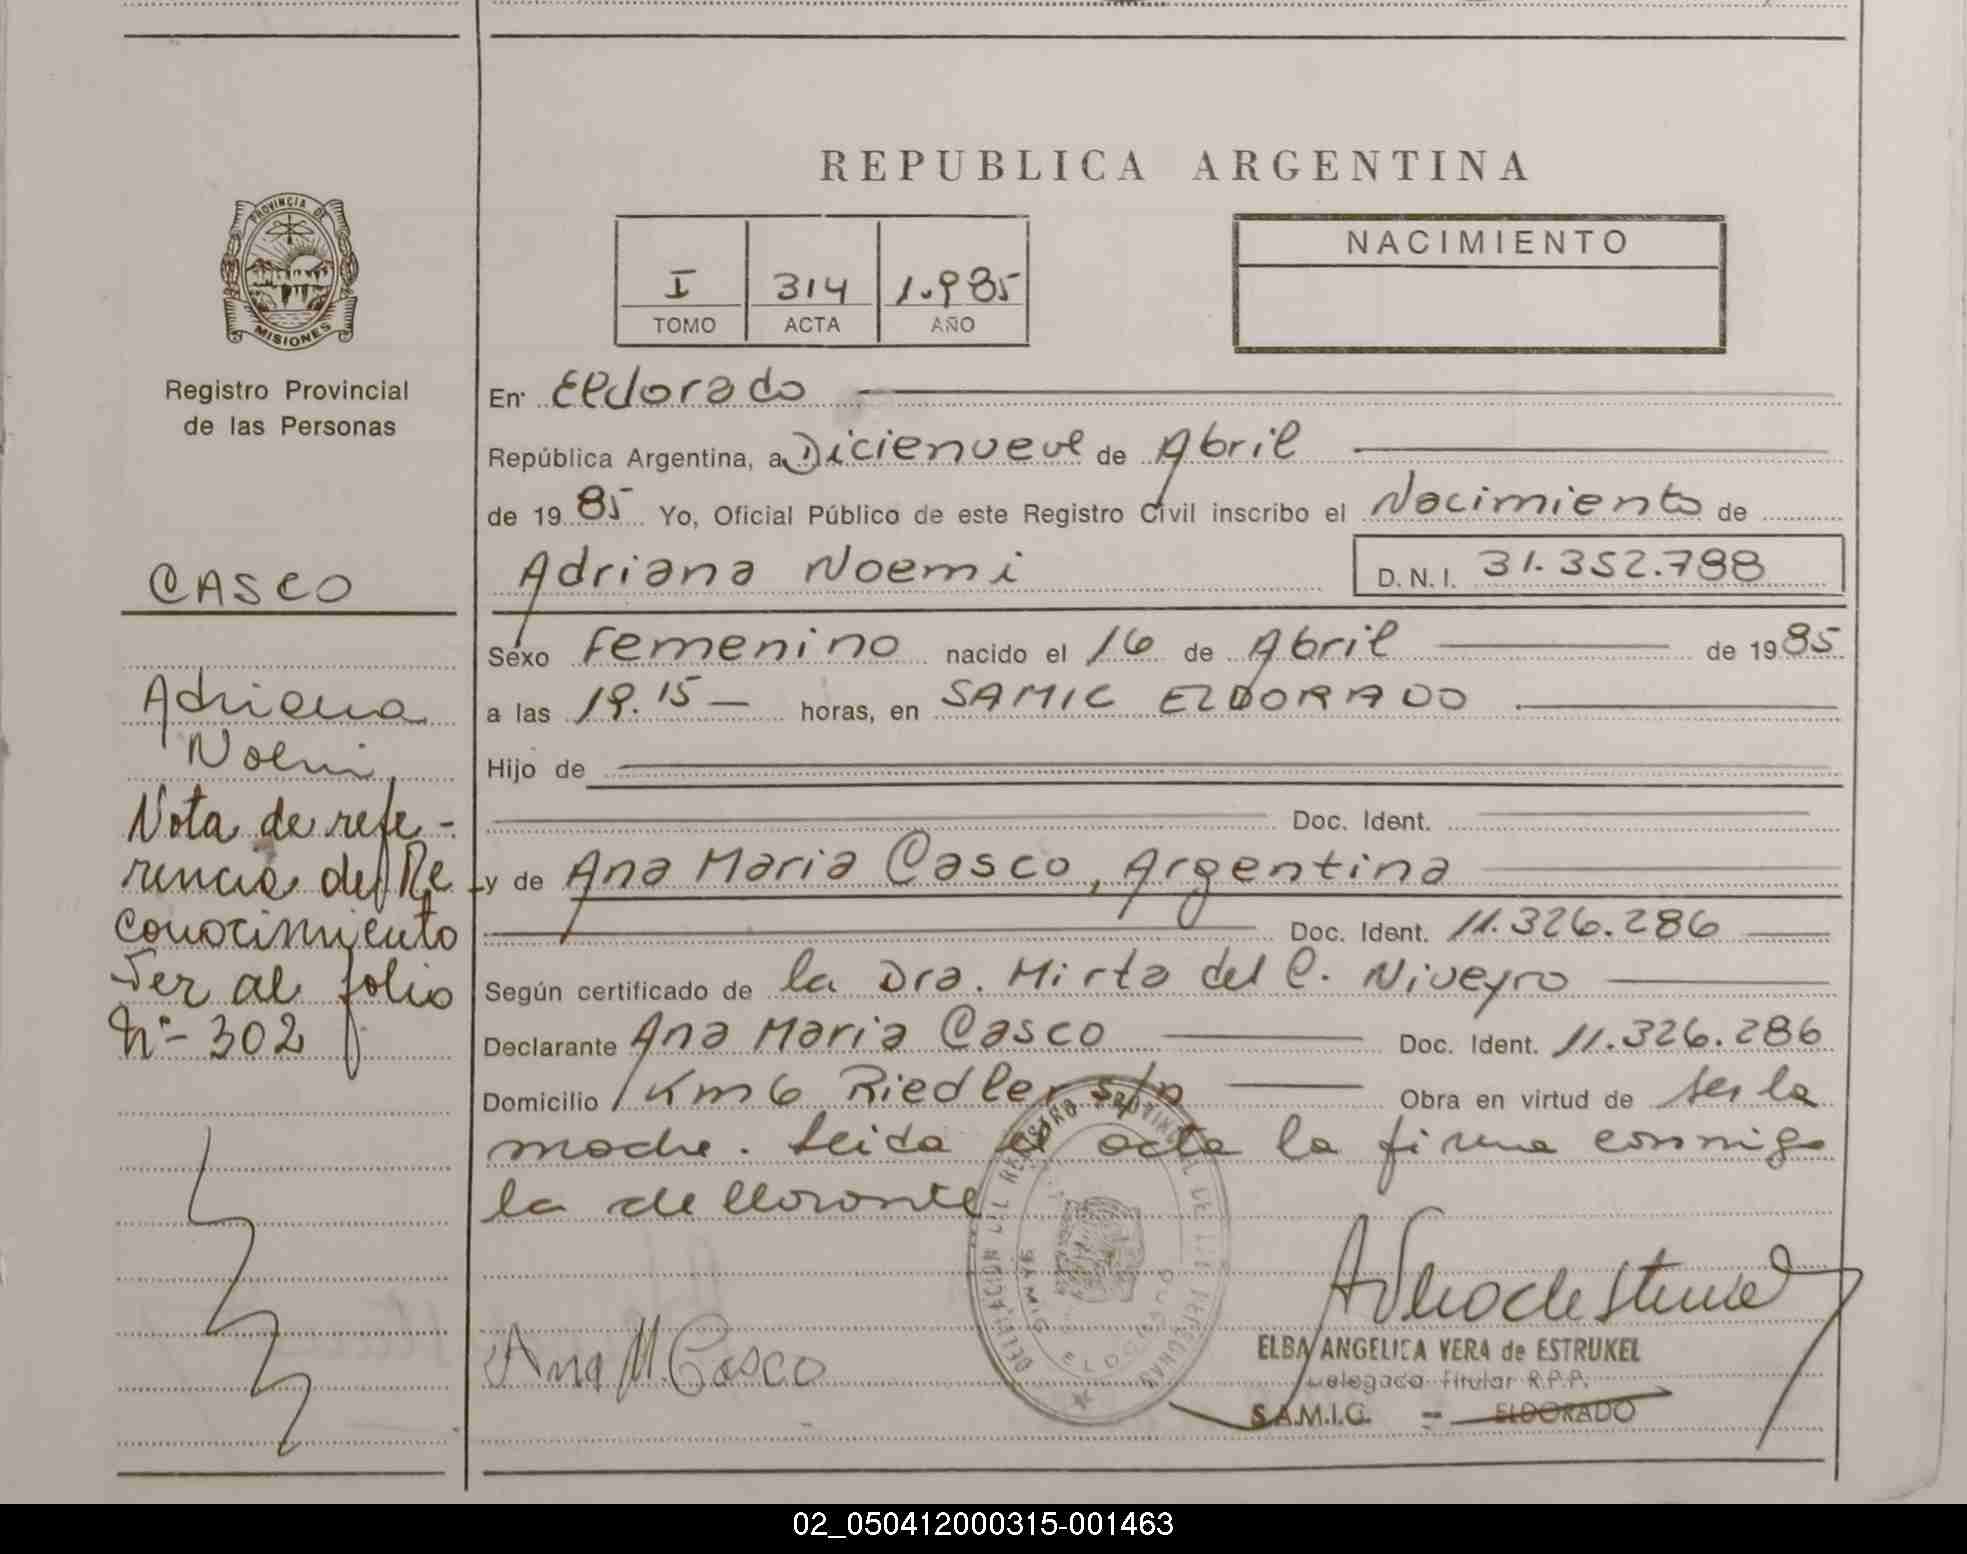 REPUBLICA ARGENTINA
PROVINCIA DE
MISIONES
Registro Provincial
de las Personas
I 314 1.985
TOMO ACTA AÑO
NACIMIENTO
CASCO
Adriana
Noemi
Nota de refe-
rencia del Re
conocimiento
Ver al folio
Nº- 302
En Eldorado
República Argentina, a Dicienueve de Abril
de 1985 Yo, Oficial Público de este Registro Civil inscribo el Nacimiento de
Adriana Noemi D.N.I. 31.352.788
Sexo Femenino nacido el 16 de Abril de 1985
a las 19.15 horas, en SAMIC ELDORADO
Hijo de
Doc. Ident.
y de Ana Maria Casco, Argentina
Doc. Ident. 11.326.286
Según certificado de la Dra. Mirta del C. Niveyro
Declarante Ana Maria Casco Doc. Ident. 11.326.286
Domicilio Km 6 Riedler s/n Obra en virtud de ser la
madre. Leida el acta la firma conmigo
la declarante
Ana M. Casco
ELDORADO
ELBA ANGELICA VERA de ESTRUKEL
Delegada Titular R.P.P.
S.A.M.I.C. - ELDORADO
02_050412000315-001463